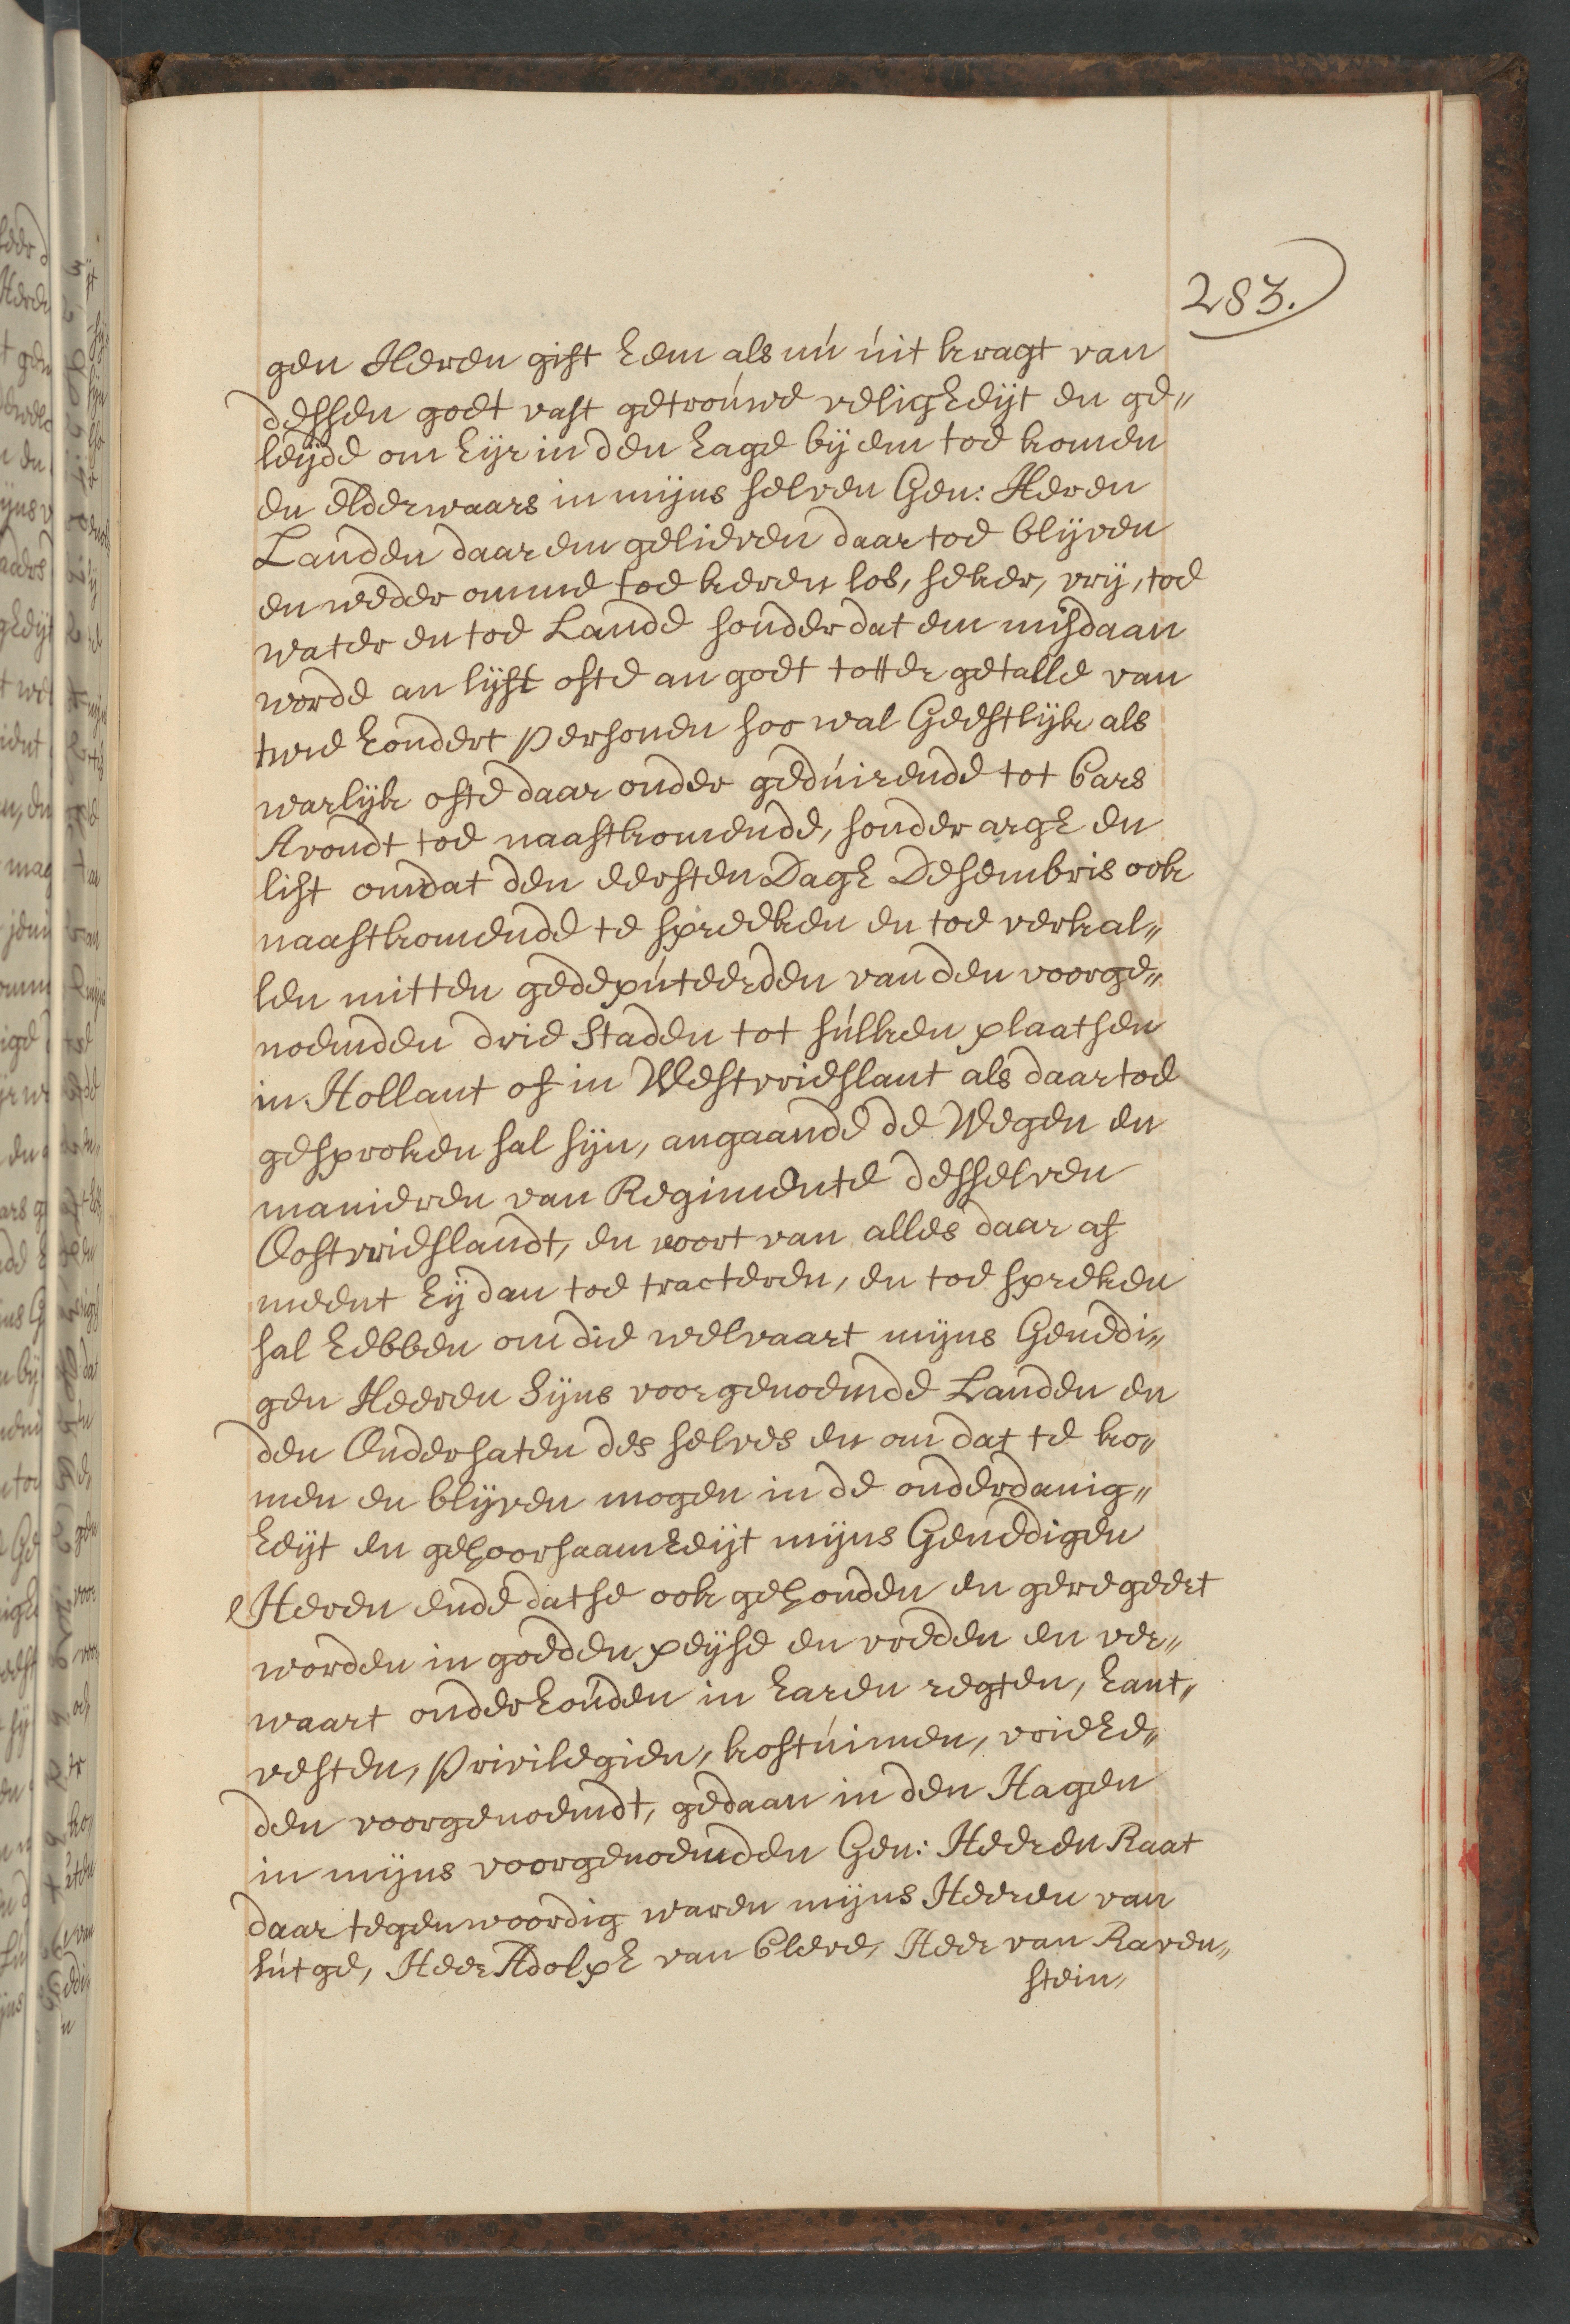 283.
gen Heren gift hem als nú úit kragt van
dessen goet vast getroúwe veligheijt en ge„
leijde om hijr in den hage bij em toe komen
en elderwaars in mijns selven Gen: Heren
Landen daar em gelieven daar toe blijven
en weder omme toe keren los, seker, vrij, toe
water en toe Lande sonder dat em misdaan
worde an lijft ofte an goet totter getalle van
twe hondert personen soo wal Geestlijk als
warlijk ofte daar onder gedúirende tot Cars
Avondt toe naastkomende, sonder argh en
list omdat den eersten Dagh Desembris ook
naastkomende te spreeken en toe verkal„
len mitten gedepúteerden van den voorge„
noemden drie Staden tot súlken plaatsen
in Hollant of in Westvrieslant als daartoe
gesproken sal sijn, angaande de Wegen en
manieren van Regimente desselven
Oostvrieslandt, en voort van alles daar af
meent hij dan toe tracteren, en toe spreken
sal hebben om die welvaart mijns Genedi„
gen Heeren Sijns voorgenoemde Landen en
den Ondersaten des selves en om dat te ko„
men en blijven mogen in de onderdanig„
heijt en gehoorsaamheijt mijns Genedigen
Heren ende datse ook gehouden en geregeert
worden in goeden peijse en vreden en ver„
waart onderhoúden in haren regten, hant„
vesten, privilegien, kostúimen, vriehe„
den voorgenoemdt, gedaan in den Hagen
in mijns voorgenoemden Gen: Heeren Raat
daar tegenwoordig waren mijns Heeren van
Lútge, Heer Adolph van Cleve, Heer van Raven„
stein„